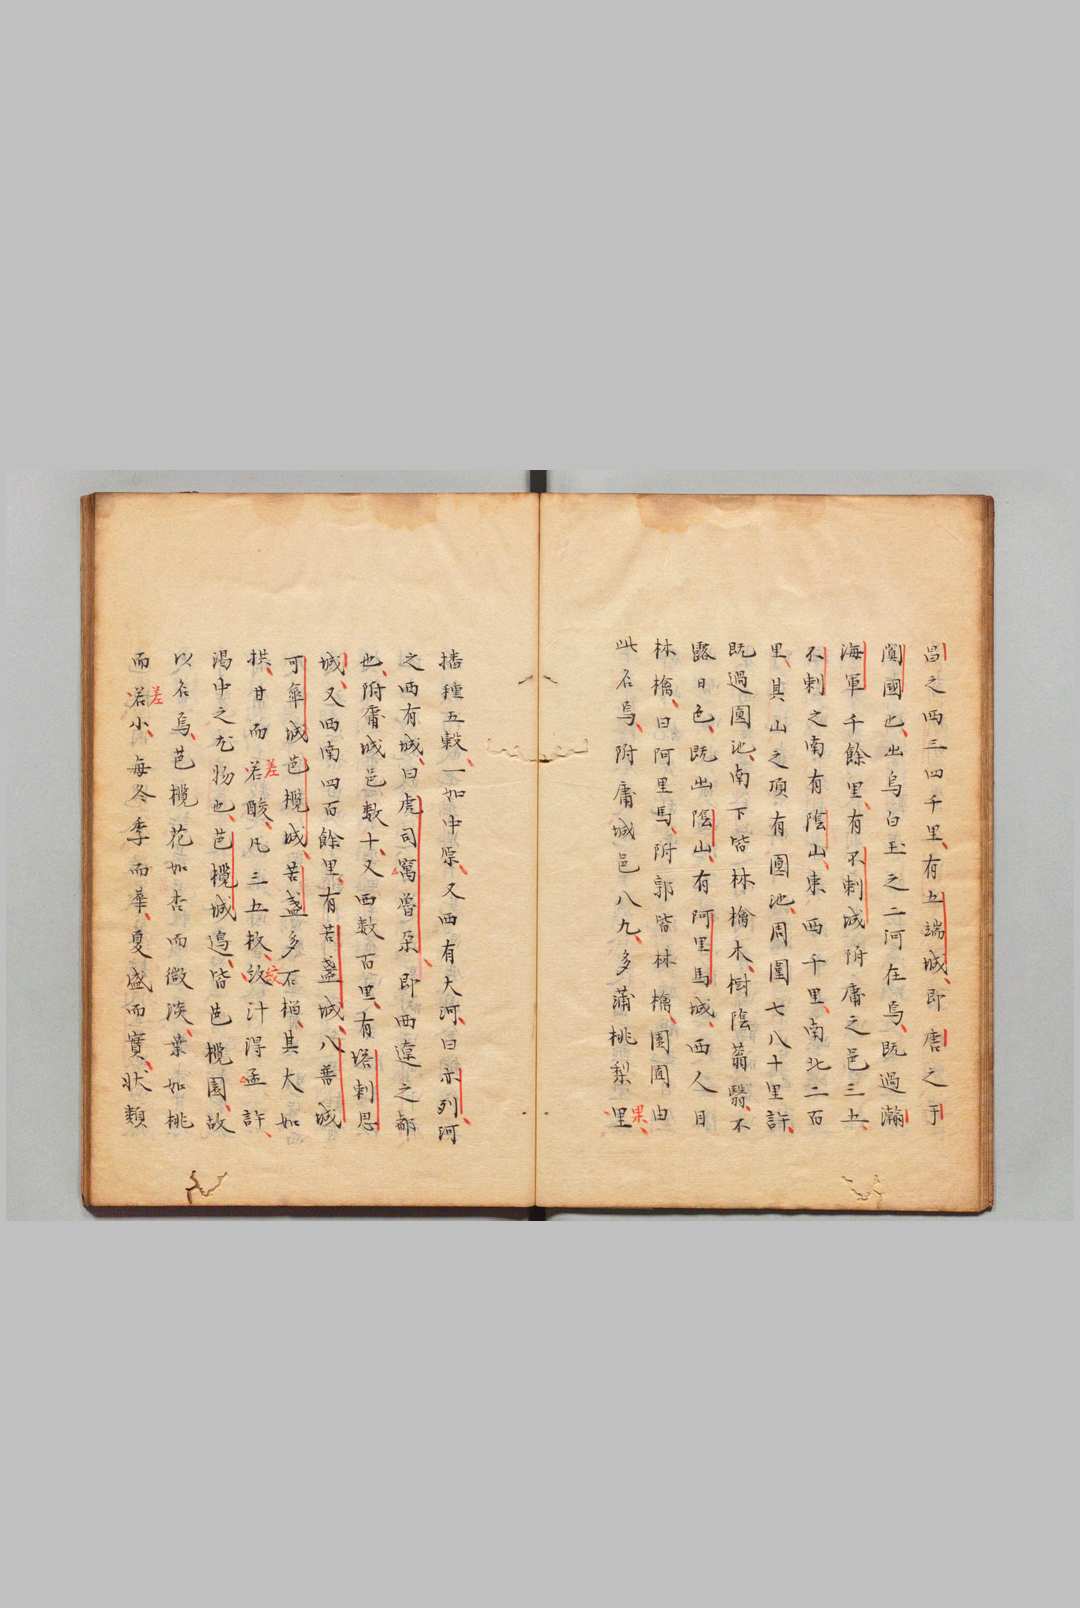 昌之西三四千里有五端城即唐之于
闐國也出烏白玉之二河在烏既過瀚
海軍千餘里有不剌城附庸之邑三五
不剌之南有陰山東西千里南北二百
里其山之頂有圓池周圍七八十里許
既過圓池南下皆林檎木樹陰蓊翳不
露日色既出陰山有阿里馬城西人目
林檎曰阿里馬附郭皆林檎園囿由
此名烏附庸城邑八九多蒲桃梨里果
播種五穀一如中原又西有大河曰亦列河
之西有城曰虎司窩魯朶即西遼之都
也附庸城邑数十又西数百里有塔剌思
城又西南四百餘里有苦盞城八普城
可傘城芭欖城苦盞多石榴其大如
拱甘而差酸凡三五枚紋汁得盂許
渴中之尤物也芭欖城邉皆芭欖園故
以名烏芭欖花如杏而微淡葉如桃
而差小每冬季而華夏盛而實状類